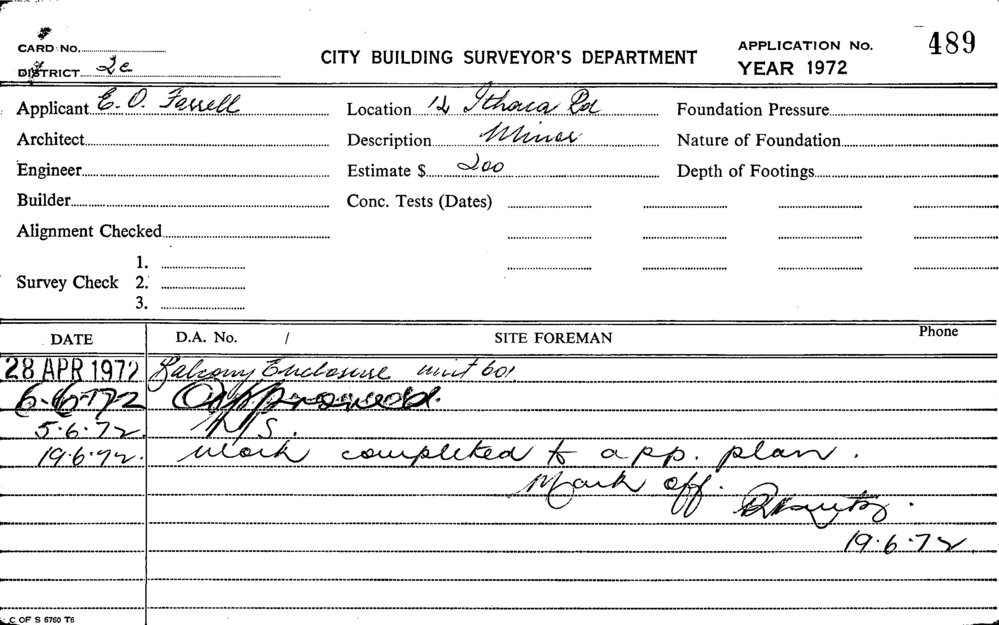 CARD NO.
DISTRICT 2e
CITY BUILDING SURVEYOR'S DEPARTMENT
APPLICATION No. 489
YEAR 1972
Applicant E. O. Farrell
Location 12 Ithaca Rd
Foundation Pressure
Architect
Description Minor
Nature of Foundation
Engineer
Estimate $ 200
Depth of Footings
Builder
Conc. Tests (Dates)
Alignment Checked
Survey Check
1.
2.
3.
DATE D.A. No. / SITE FOREMAN Phone
28 APR 1972 Balcony Enclosure unit 601
6.6.72 Approved.
5.6.72 N/S.
19.6.72. Work completed to app. plan.
Mark off.
19.6.72
C OF S 6760 T6